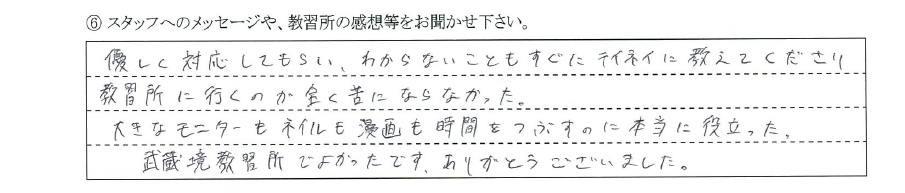 ⑥ スタッフへのメッセージや、教習所の感想等をお聞かせ下さい。
優しく対応してもらい、わからないこともすぐにテイネイに教えてくださり
教習所に行くのが全く苦にならなかった。
大きなモニターもネイルも漫画も時間をつぶすのに本当に役立った。
武蔵境教習所でよかったです、ありがとうございました。